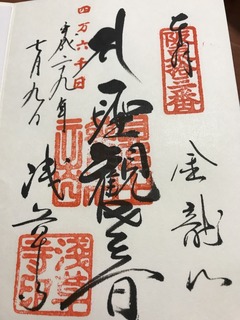 奉拝
坂東拾三番
金龍山
聖観世音
浅草寺
浅草寺印
四万六千日
平成二九年
七月九日